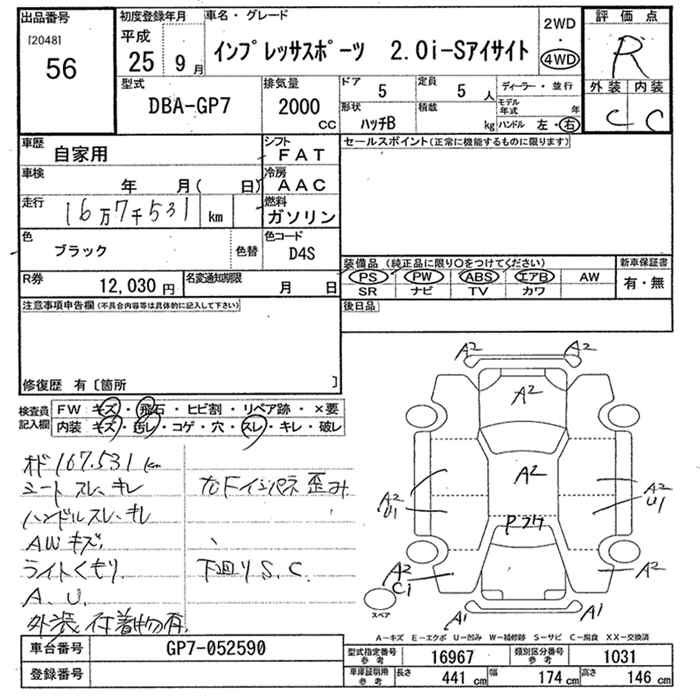 出品番号
[2048]
56
初度登録年月
平成
25 9月
車名・グレード
インプレッサスポーツ 2.0i-Sアイサイト
2WD
・
4WD
評価点
R
外装 内装
C C
型式
DBA-GP7
排気量
2000
CC
ドア
5
定員
5 人
形状
ハッチB
積載
kg
ディーラー・並行
モデル年式 年
ハンドル 左・右
車歴
自家用
シフト
FAT
車検
年 月( 日)
冷房
AAC
走行
16万7千531 km
燃料
ガソリン
色
ブラック
色替
色コード
D4S
R券
12,030 円
名変通知期限
月 日
セールスポイント(正常に機能するものに限ります)
装備品 (純正品に限り○をつけてください)
PS PW ABS エアB AW
SR ナビ TV カワ
新車保証書
有・無
後日品
注意事項申告欄 (不具合内容等は具体的に記入して下さい)
修復歴 有〔箇所 〕
検査員記入欄
FW キズ・飛石・ヒビ割・リペア跡・×要
内装 キズ・汚レ・コゲ・穴・スレ・キレ・破レ
オド 167.531 km
シート スレ、キレ
ハンドルスレ、キレ
AW キズ
ライトくもり
A、U
外装 付着物有
右Fインパネ歪み
下廻り S、C
A2 A2
A2
A2
A2
U1
A2
U1
Pクク
A2
C1
A2
A1 A1
スペア
A−キズ E−エクボ U−凹み W−補修跡 S−サビ C−腐食 XX−交換済
車台番号
GP7-052590
登録番号
型式指定番号
参考
16967
類別区分番号
参考
1031
車庫証明用
参考
長さ 441 cm 幅 174 cm 高さ 146 cm